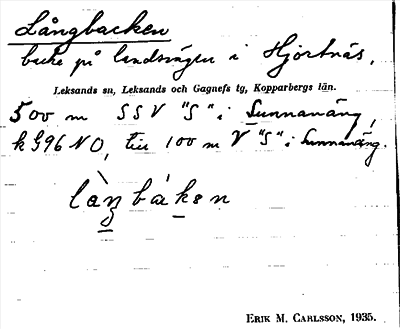 Långbacken
backe på landsvägen i Hjortnäs.
Leksands sn, Leksands och Gagnefs tg, Kopparbergs län.
500 m SSV "S" i Sunnanäng,
k 596 NO, till 100 m V "S" i Sunnanäng.
ERIK M. CARLSSON, 1935.